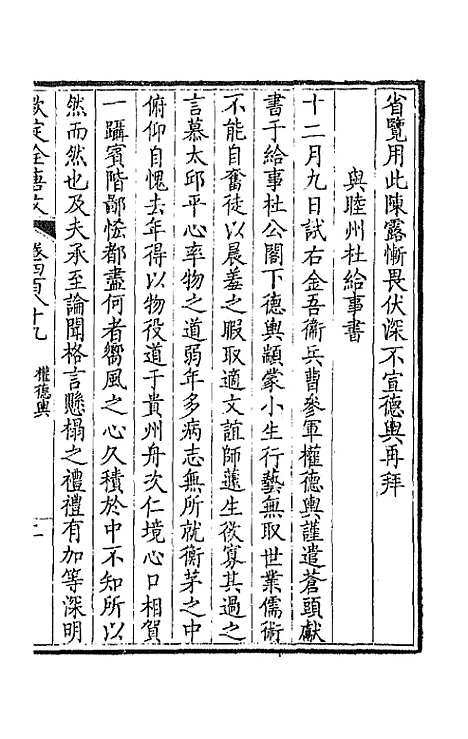 省覽用此陳露慚畏伏深不宣德輿再拜
與睦州杜給事書
十二月九日試右金吾衛兵曹參軍權德輿謹遣蒼頭獻
書于給事杜公閣下德輿顓蒙小生行藝無取世業儒術
不能自奮徒以晨羞之暇取適文誼師蘧生欲寡其過之
言慕太邱平心率物之道弱年多病志無所就衡茅之中
俯仰自愧去年得以物役道于貴州舟次仁境心口相賀
一躡賓階鄙悋都盡何者嚮風之心久積於中不知所以
然而然也及夫承至論聞格言懸榻之禮禮有加等深明
欽定全唐文 卷四百八十九 權德輿